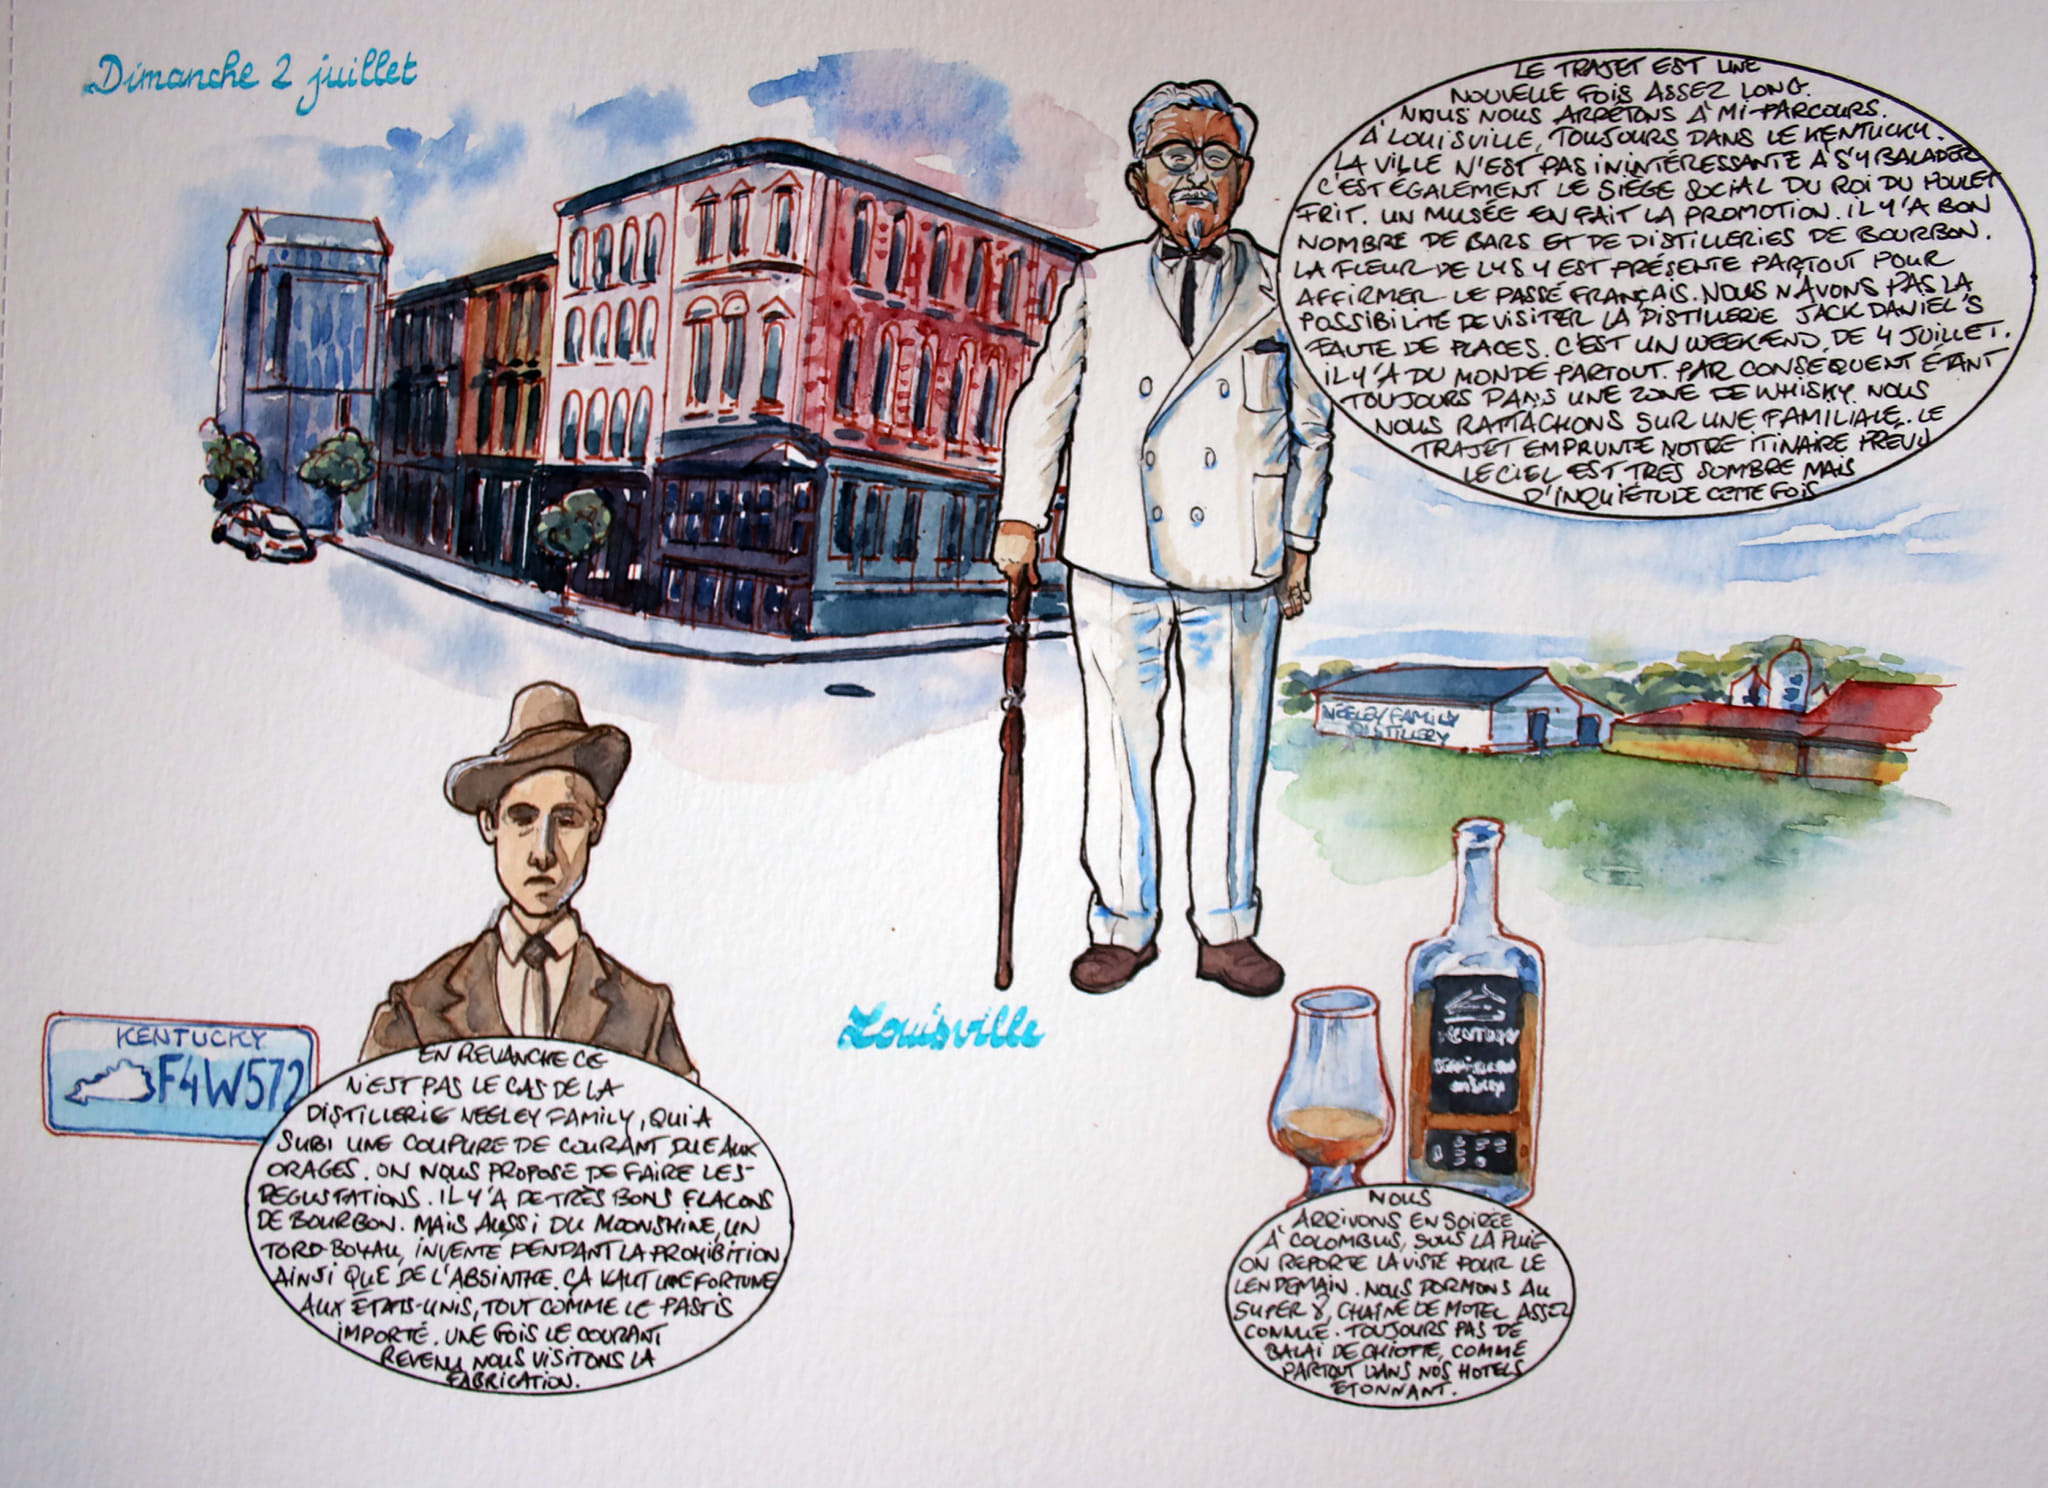 Dimanche 2 juillet
LE TRAJET EST UNE
NOUVELLE FOIS ASSEZ LONG.
NOUS NOUS ARRÊTONS À MI-PARCOURS.
À LOUISVILLE, TOUJOURS DANS LE KENTUCKY.
LA VILLE N'EST PAS ININTÉRESSANTE À S'Y BALADER
C'EST ÉGALEMENT LE SIÈGE SOCIAL DU ROI DU POULET
FRIT. UN MUSÉE EN FAIT LA PROMOTION. IL Y'A BON
NOMBRE DE BARS ET DE DISTILLERIES DE BOURBON.
LA FLEUR DE LYS Y EST PRÉSENTE PARTOUT POUR
AFFIRMER LE PASSÉ FRANÇAIS. NOUS N'AVONS PAS LA
POSSIBILITÉ DE VISITER LA DISTILLERIE JACK DANIEL'S
FAUTE DE PLACES. C'EST UN WEEK-END DE 4 JUILLET.
IL Y'A DU MONDE PARTOUT. PAR CONSÉQUENT ÉTANT
TOUJOURS DANS UNE ZONE DE WHISKY. NOUS
NOUS RATTACHONS SUR UNE FAMILIALE. LE
TRAJET EMPRUNTE NOTRE ITINAIRE PRÉVU
LE CIEL EST TRÈS SOMBRE MAIS
D'INQUIÉTUDE CETTE FOIS
NEELEY FAMILY
DISTILLERY
KENTUCKY
F4W572
Louisville
KENTUCKY
EN REVANCHE CE
N'EST PAS LE CAS DE LA
DISTILLERIE NEELEY FAMILY, QUI A
SUBI UNE COUPURE DE COURANT DUE AUX
ORAGES. ON NOUS PROPOSE DE FAIRE LES
DEGUSTATIONS. IL Y'A DE TRÈS BONS FLACONS
DE BOURBON. MAIS AUSSI DU MOONSHINE, UN
TORD-BOYAU, INVENTÉ PENDANT LA PROHIBITION
AINSI QUE DE L'ABSINTHE. ÇA VAUT UNE FORTUNE
AUX ÉTATS-UNIS, TOUT COMME LE PASTIS
IMPORTÉ. UNE FOIS LE COURANT
REVENU NOUS VISITONS LA
FABRICATION.
NOUS
ARRIVONS EN SOIRÉE
À COLOMBUS, SOUS LA PLUIE
ON REPORTE LA VISITE POUR LE
LENDEMAIN. NOUS DORMONS AU
SUPER 8, CHAÎNE DE MOTEL ASSEZ
CONNUE. TOUJOURS PAS DE
BALAI DE CHIOTTE, COMME
PARTOUT DANS NOS HOTELS
ÉTONNANT.